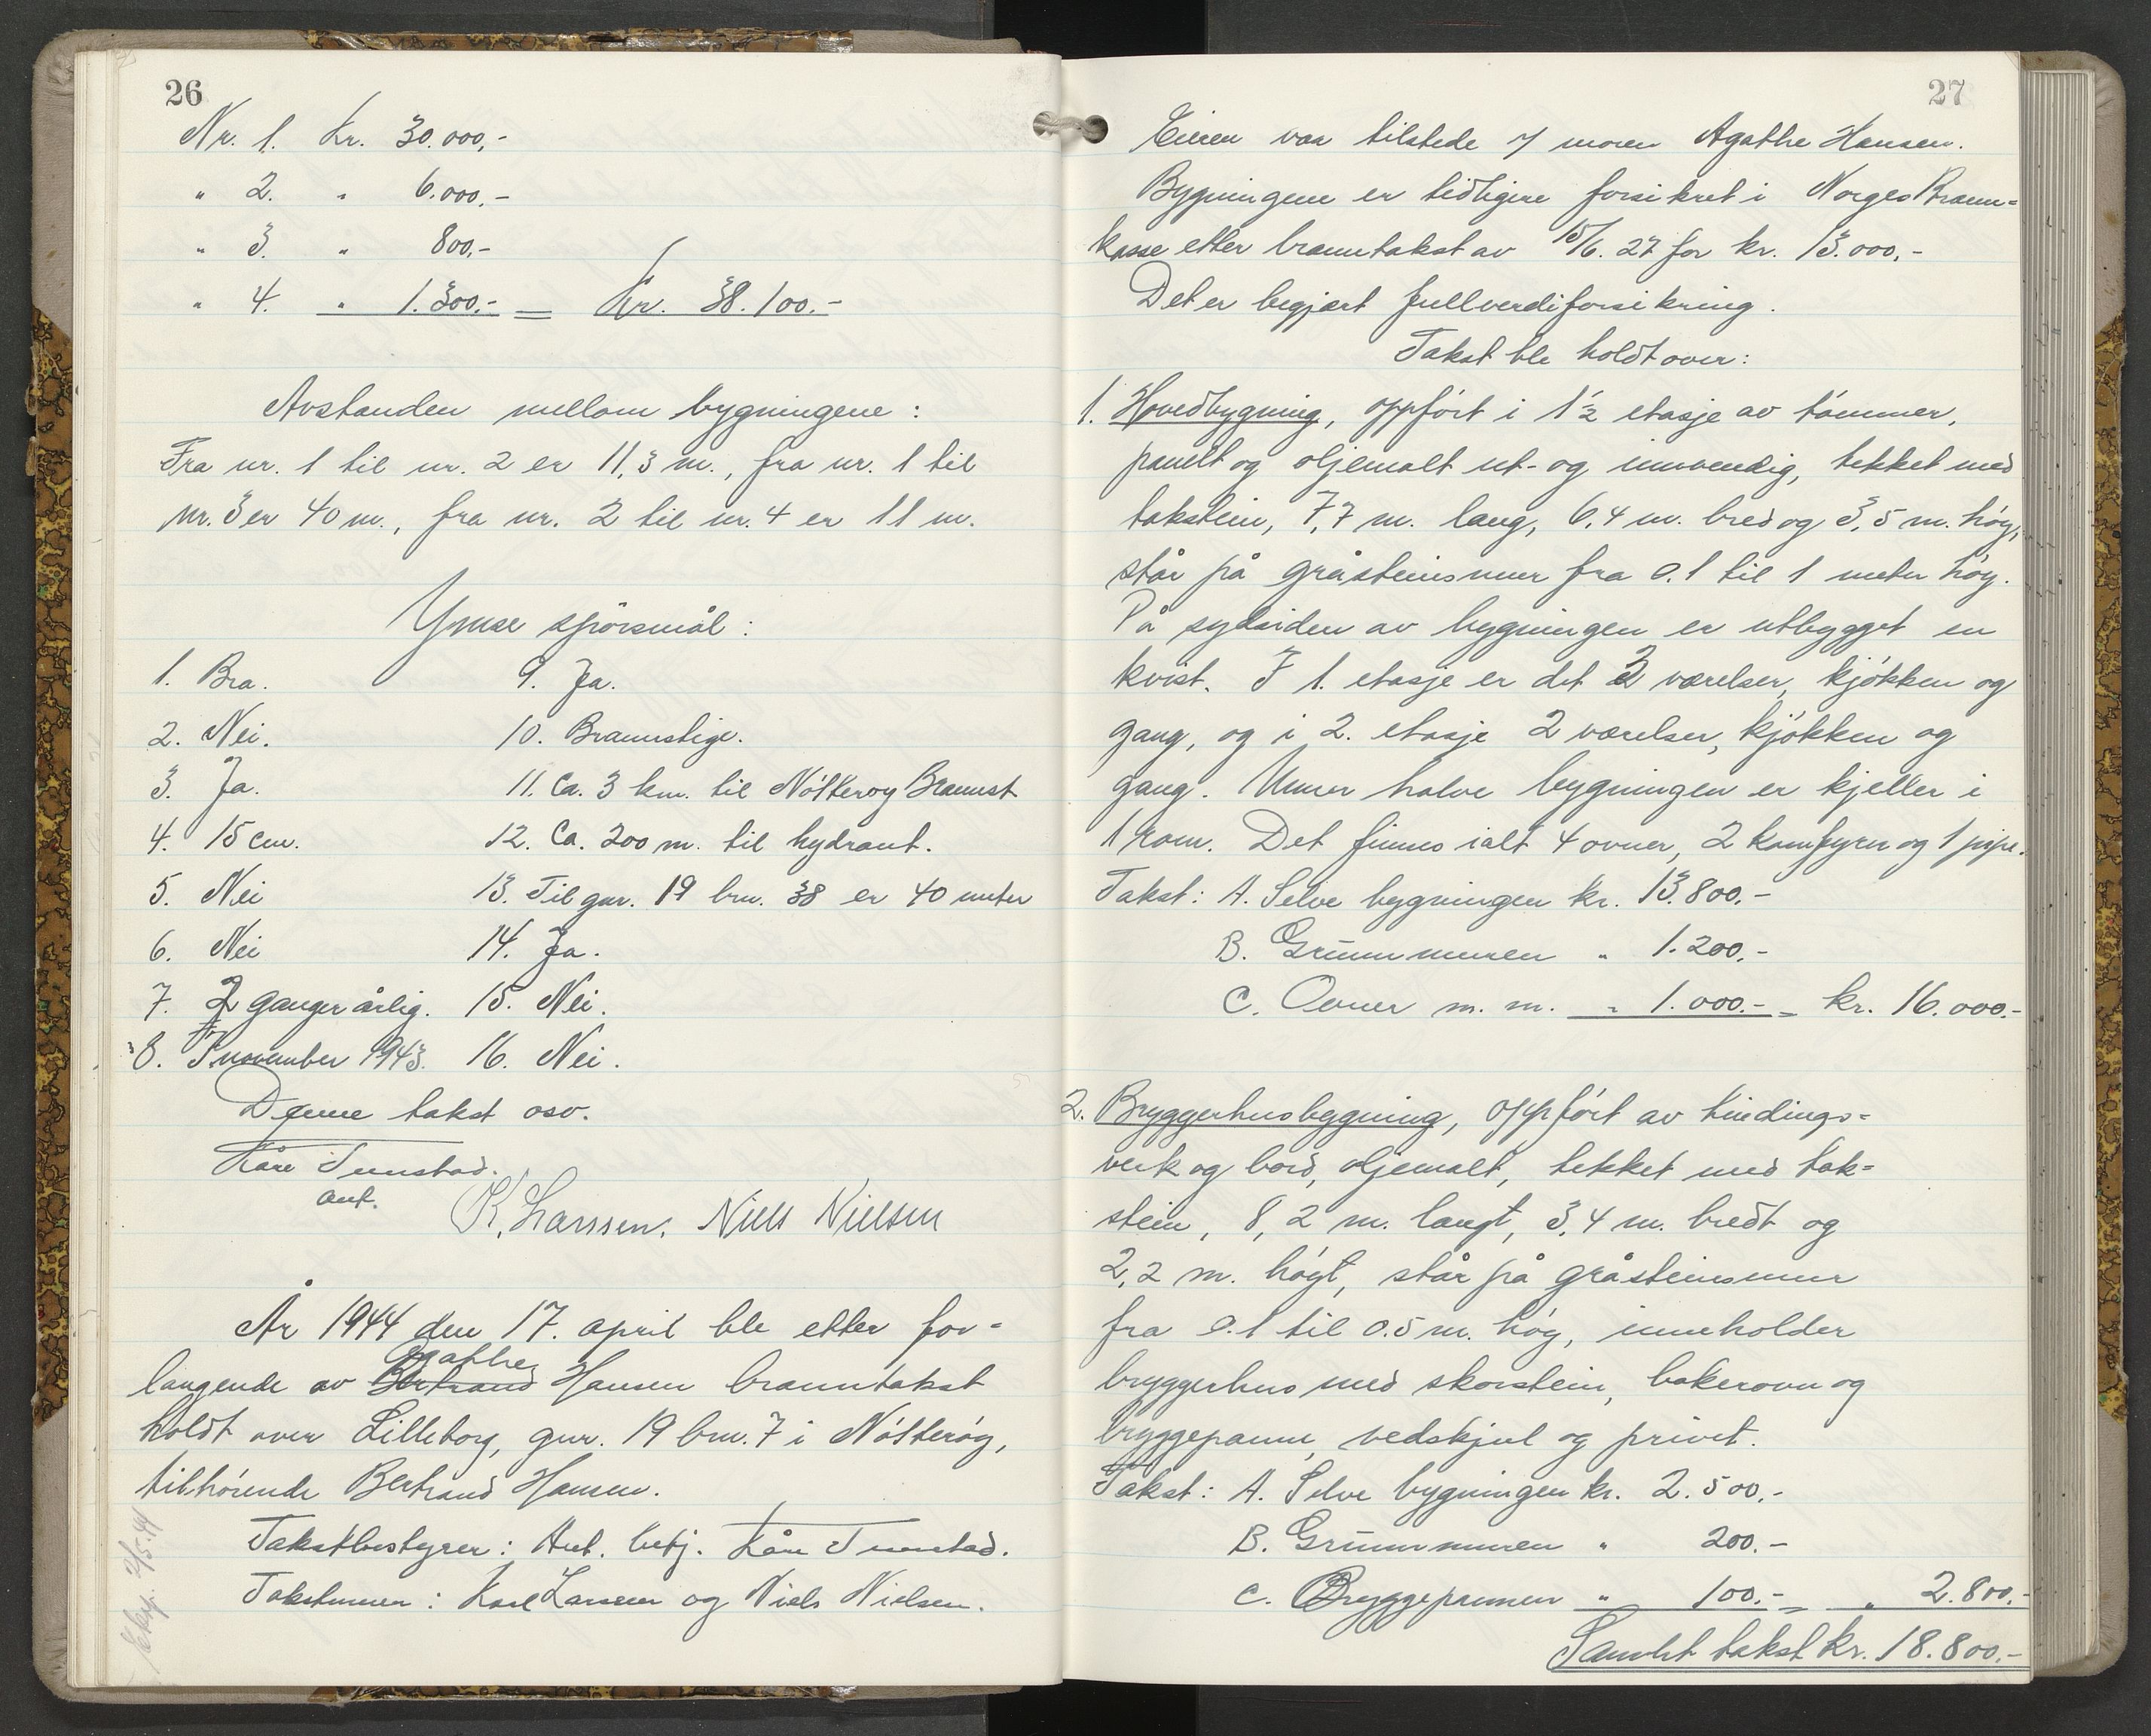 26
Nr. 1. Kr. 30.000,-
" 2. " 6.000,-
" 3. " 800,-
" 4. " 1.300.- = Kr. 38.100.-
Avstanden mellom bygningene :
Fra nr. 1 til nr. 2 er 11,3 m., fra nr. 1 til
nr. 3 er 40 m., fra nr. 2 til nr. 4 er 11 m.
Ymse spörsmål :
1. Bra.
2. Nei.
3. Ja.
4. 15 cm.
5. Nei
6. Nei
7. 2 ganger årlig.
8. I november 1943.
9. Ja.
10. Brannstige.
11. Ca. 3 km. til Nötteröy Brannst
12. Ca. 200 m. til hydrant.
13. Til gnr. 19 bnr. 38 er 40 meter
14. Ja.
15. Nei.
16. Nei.
Denne takst osv.
Kåre Tunstad.
ant.
K. Larssen. Niels Nielsen
År 1944 den 17. april ble etter for-
Agathe
langende av Bertrand Hansen branntakst
holdt over Lilleborg, gnr. 19 bnr. 7 i Nötteröy,
tilhörende Bertrand Hansen.
Takstbestyrer : Ant. betj. Kåre Tunstad.
Takstmenn : Karl Larssen og Niels Nielsen.
Ekp. 2/5-44
27
Eieren var tilstede v/ moren Agathe Hansen.
Bygningene er tidligere forsikret i Norges Brann-
kasse etter branntakst av 15/6. 27 for kr. 13.000,-
Det er begjært fullverdiforsikring.
Takst ble holdt over :
1. Hovedbygning, oppfört i 1½ etasje av tömmer,
panelt og oljemalt ut- og innvendig, tekket med
takstein, 7,7 m. lang, 6,4 m. bred og 3,5 m. höy,
står på gråsteinsmur fra 0.1 til 1 meter höy.
På sydsiden av bygningen er utbygget en
kvist. I 1. etasje er det 2 værelser, kjökken og
gang, og i 2. etasje 2 værelser, kjökken og
gang. Unner halve bygningen er kjeller i
1 rom. Det finnes ialt 4 ovner, 2 komfyrer og 1 pipe.
Takst : A. Selve bygningen kr. 13.800,-
B. Grunnmuren " 1.200.-
C. Ovner m. m. " 1.000.- = kr. 16.000.-
2. Bryggerhusbygning, oppfört av bindings-
verk og bord, oljemalt, tekket med tak-
stein, 8,2 m. langt, 3,4 m. bredt og
2,2 m. höyt, står på gråsteinsmur
fra 0.1 til 0.5 m. höy, inneholder
bryggerhus med skorstein, bakerovn og
bryggepanne, vedskjul og privet.
Takst : A. Selve bygningen kr. 2.500,-
B. Grunnmuren " 200.-
C. Bryggepannen " 100.- = " 2.800.-
Samlet takst kr. 18.800.-